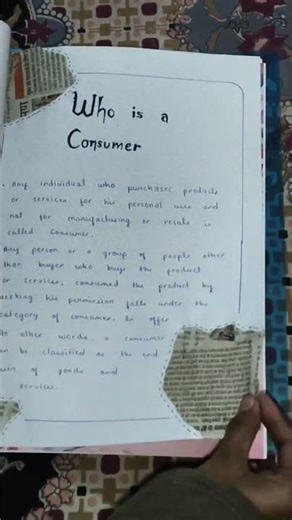 Who is a
Consumer
. Any individual who purchases products
or services for his personal use and
not for manufacturing or resale is
called Consumer.
Any person or a group of people other
than buyer who buys the product
or services, consumed the product by
seeking his permission falls under the
category of consumer. In offer
In other words, a consumer
can be classified as the end
users of goods and
services.